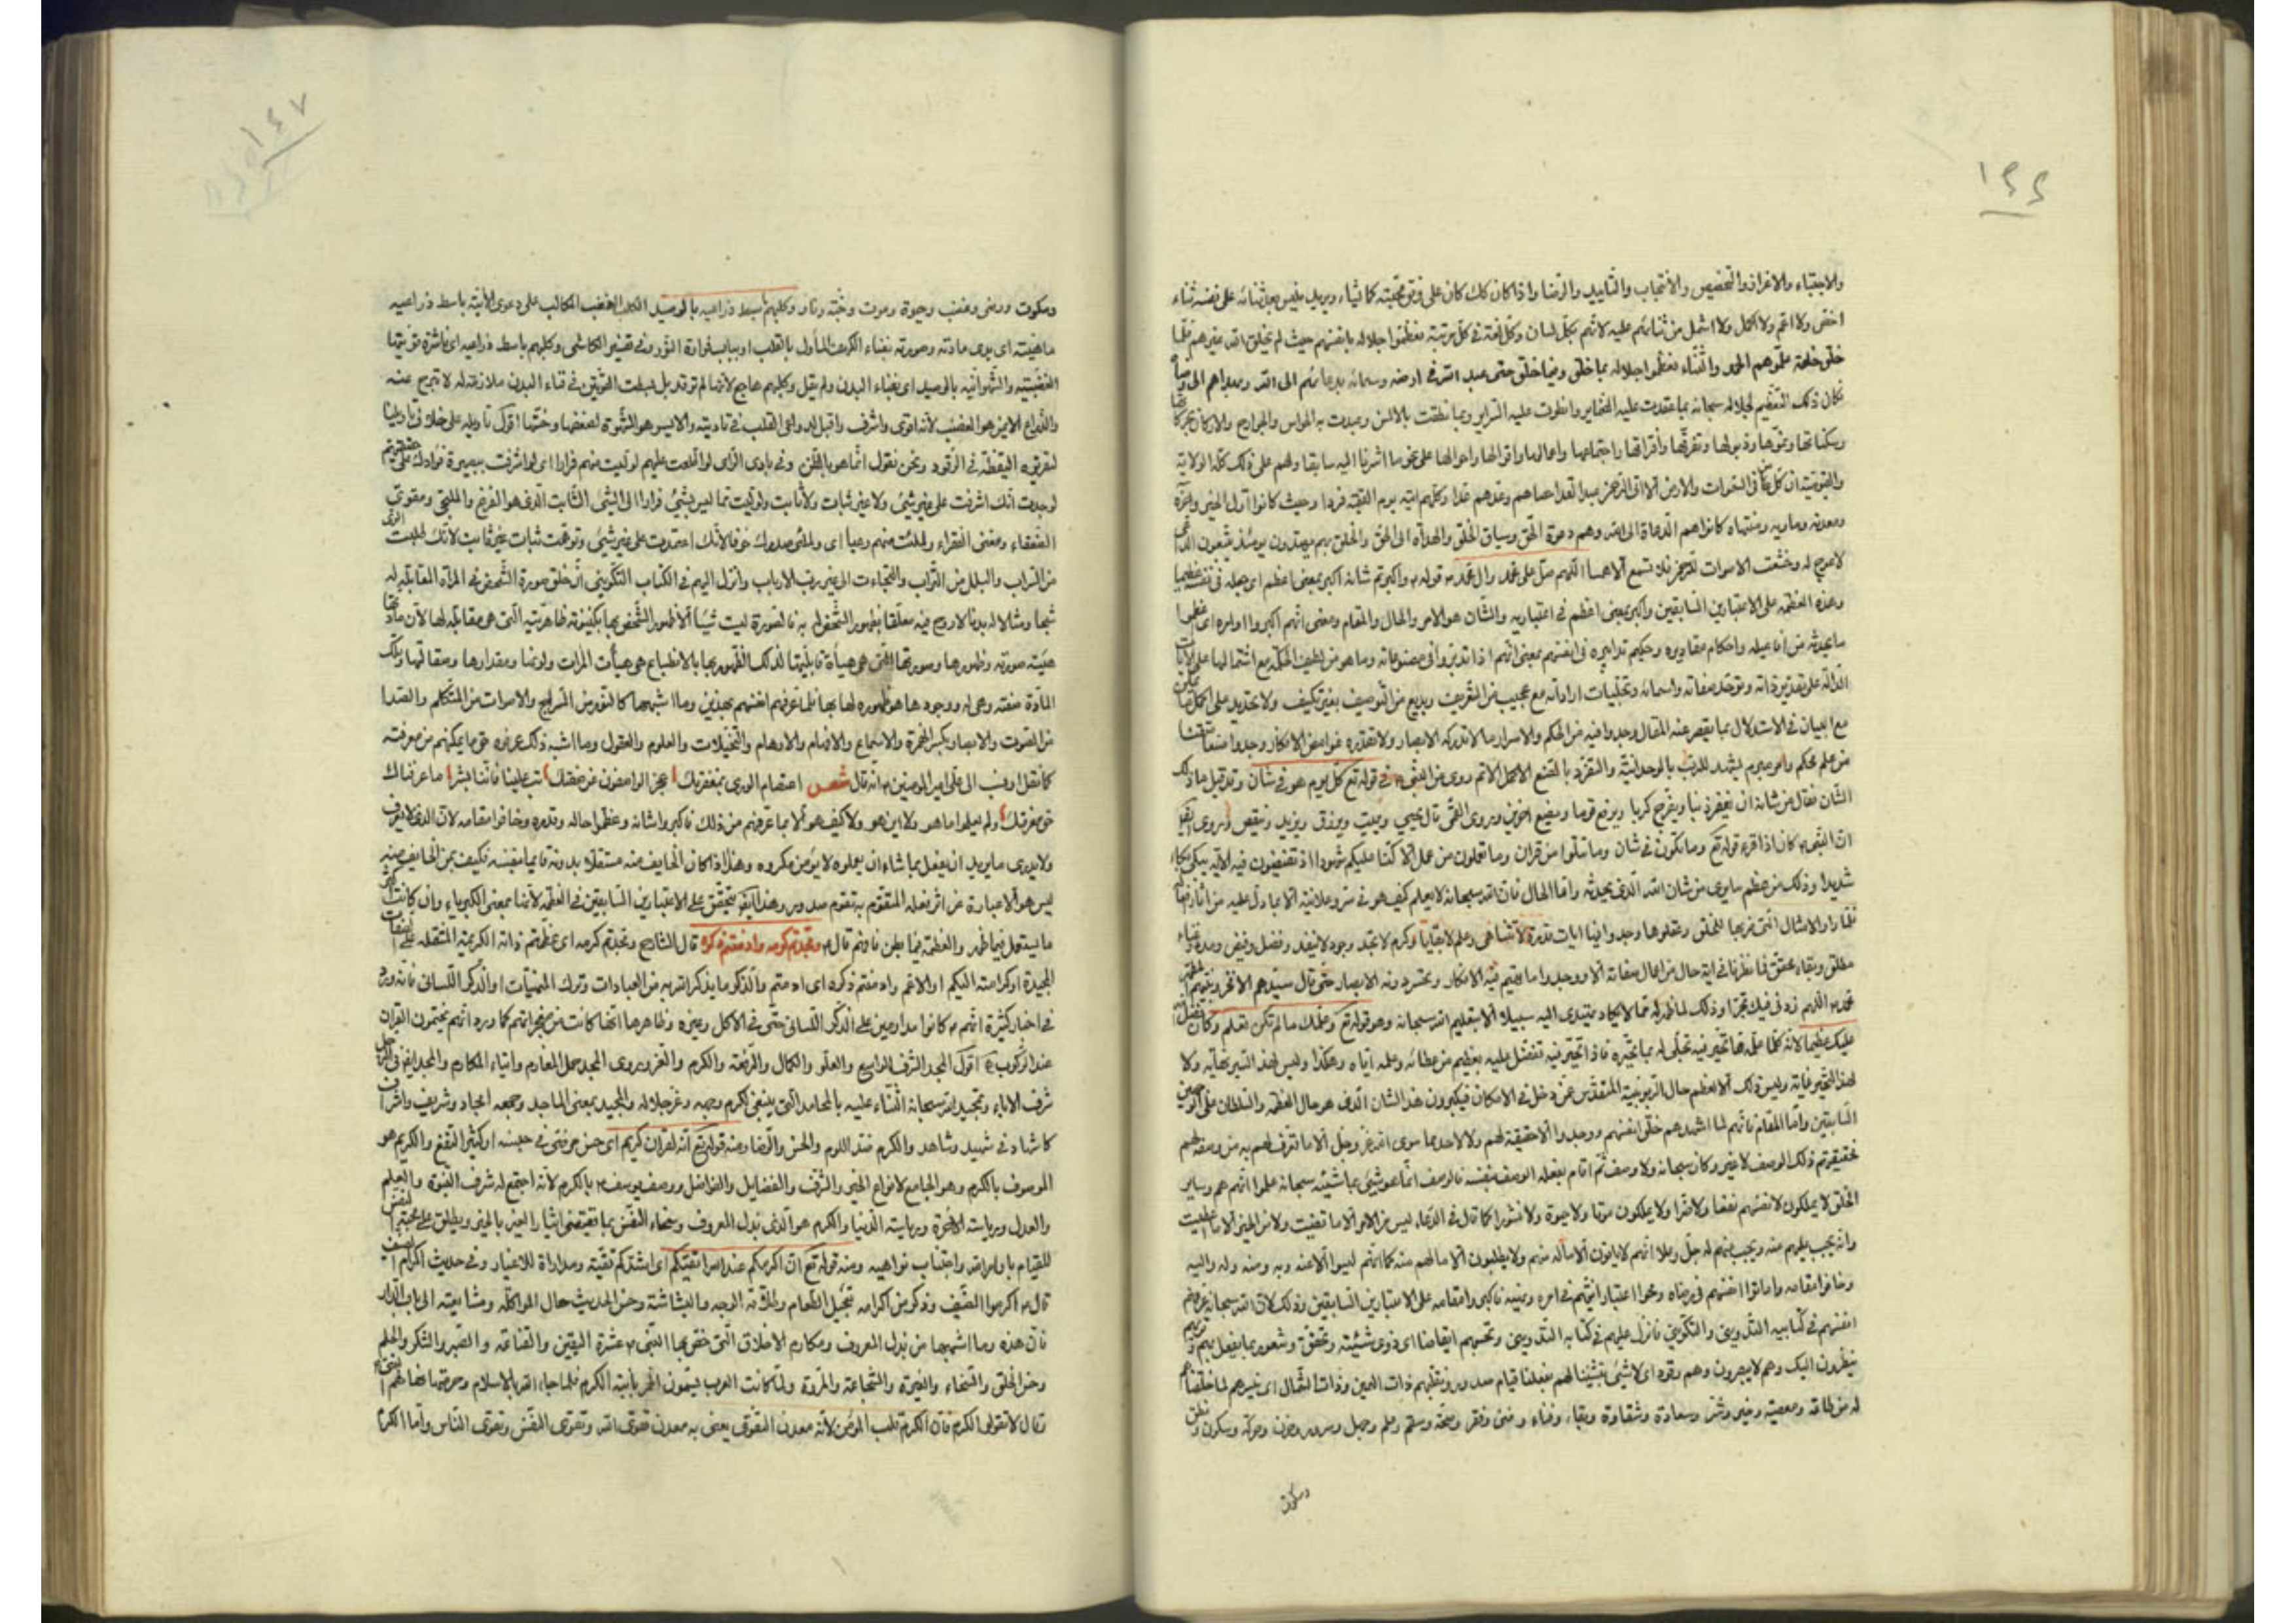 ١٤٦
والاجتباء والاعزاز والتخصيص والانتجاب والتأييد والرضا واذا كان كك كان على وفق محبته كما يشاء ويريد فليس بعد ثنائه على نفسه ثناء
اخص ولا اعم ولا اكمل ولا اشمل من ثنائهم عليه لانهم بكل لسان وكل لغة في كل مرتبة فعظموا جلاله بانفسهم حيث لم يخلق الله غيرهم فلما
خلق خلقه علموهم الحمد والثناء فعظموا جلاله بما خلق وفيما خلق حتى عبد الله في ارضه وسمائه بدعائهم الى الله
فكان ذلك التعظيم لجلاله سبحانه بما عقدت عليه الضماير وانطوت عليه السراير وبما نطقت به الالسن وعبدت به الحواس والجوارح والاركان
وسكناتها ونموها وذبولها وتفرقها واقترانها واجتماعها واعمالها واقوالها واحوالها على نحو ما اشرنا اليه سابقا ولهم على ذلك كله الولاية
والقيومية ان كل من في السموات والارض الا اتى الرحمن عبدا لقد احصاهم وعدهم عدا وكلهم اتيه يوم القيمة فردا وحيث كانوا اول الخير وآخره
ومعدنه وماويه ومنتهاه كانوا هم الدعاة الى الله وهم دعوة الحق وسياق الخلق والهداة الى الحق والخلق بهم مهتدون يومئذ يتبعون الداعي
لا عوج له وخشعت الاصوات للرحمن فلا تسمع الا همسا اللهم صل على محمد وال محمد قوله واكبرتم شانه اكبر بمعنى اعظم اي جعله في نفسه عظيما
وهذه العظمة على الاعتبارين السابقين واكبر بمعنى اعظم في اعتباريه والشان هو الامر والحال والمقام ومعنى انهم اكبروا امره اي عظموا
ما يحدثه من افاعيله واحكام مقاديره وحكيم تدابيره في انفسهم بمعنى انهم اذا تدبروا في مصنوعاته وما هو من لطيف الحكمة مع اشتمالها على الايات
الدالة على تقديس ذاته وتوحد صفاته واسمائه وتجليات اراداته مع عجيب من التعريف وبديع من التوصيف بغير تكييف ولا تحديد على اكمل
مع البيان في الاستدلال بما يقصر عنه المقال وجدوا فيه من الحكم والاسرار ما لا تدركه الابصار ولا تقدره غوامض الافكار وجدوا صنعا متقنا
من علم محكم وامر مبرم تشهد للرب بالوحدانية والتفرد بالصنع الاكمل الاتم روى عن النبي في قوله تع كل يوم هو في شان وقد قيل ما ذلك
الشان فقال من شانه ان يغفر ذنبا ويفرج كربا ويرفع قوما ويضع اخرين وروى القمي قال يحيي ويميت ويرزق ويزيد وينقص وروى ايضا
ان النبي كان اذا قرء قوله تع وما تكون في شان وما تتلوا من قران وما تعملون من عمل الا كنا عليكم شهودا اذ تفيضون فيه الاية يبكي بكاء
شديدا وذلك من عظم ما يرى من شان الله الذي يحدثه واما الحال فان الله سبحانه لا يعلم كيف هو في سر وعلانية الا بما دل عليه من اثار
فنظروا والامثال التي ضربها للخلق وعقلوها وجدوا فيها ايات قدرة لا تتناهى وعلم لا يغايا وكرم لا يحد وجود لا ينفد وفضل وفيض ومدد وغناء
مطلق وبقاء محقق فما نظروا في اية حال من احوال صفاته الا ووجدوا ما يتيه فيه الافكار وتحسر دونه الابصار حتى قال سيدهم الاكبر ونبيهم
محمد اللهم زدني فيك تحيرا وذلك لما ظهر له مما لا يكاد يهتدي اليه سبيلا الا بتعليم الله سبحانه وهو قوله تع وعلمك ما لم تكن تعلم وكان فضل
عليك عظيما لانه كلما علمه مما تحير فيه تجلى له بما يحيره فاذا تحير فيه تفضل عليه بعظيم من عطائه وعلمه اياه وهكذا وليس لهذا السير نهاية ولا
لهذا التحير غاية وليس ذلك الا لعظم حال الربوبية المقدس عن دخل في الامكان فيكبرون هذا الشان الذي هو حال العظمة والسلطان على الوجهين
السابقين واما المقام فانهم لما اشهدهم خلق انفسهم ووجدوا الا حقيقة لهم ولا لاحد مما سوى الله عز وجل الا ما تعرف لهم به من وصفه لهم
فحقيقتهم ذلك الوصف لا غير وكان سبحانه ولا وصف ثم اقام بفعله الوصف بنفسه فالوصف انما هو شيء بما شيئه سبحانه علموا انهم هم وساير
الخلق لا يملكون لانفسهم نفعا ولا ضرا ولا يملكون موتا ولا حيوة ولا نشورا كما قال في الدعاء ليس من الامر الا ما قضيت ولا من الخير الا ما اعطيت
وانه يجب عليهم منه ويجب منهم له جل وعلا انهم لا ياتون الا ما له منهم ولا يطلبون الا ما لهم منه كما انهم ليسوا الا عنه وبه ومنه وله واليه
وخافوا مقامه واماتوا انفسهم في رضاه ومحوا اعتبار انيتهم في امره ونهيه فاكبروا مقامه على الاعتبارين السابقين وذلك لان الله سبحانه عرفهم
انفسهم في كتابيه التدويني والتكويني فانزل عليهم في كتابه التدويني وتحسبهم ايقاظا اي ذوى شيئية وتحقق وشعور بما يفعل بهم وتريهم
ينظرون اليك وهم لا يبصرون وهم رقود اي لا شيء بشيئنا لهم بفعلنا قيام صدور ونقلبهم ذات اليمين وذات الشمال اي نيسرهم لما خلقناهم
له من طاعة ومعصية وخير وشر وسعادة وشقاوة وبقاء وفناء وغنى وفقر وصحة وسقم وعلم وجهل وسرور وحزن وحركة وسكون ونطق
وسكوت
١٤٧
وسكوت ورضى وغضب وحيوة وموت وجنة ونار وكلبهم باسط ذراعيه بالوصيد الكلب الغضب الكالب على دعوى الانية باسط ذراعيه
ماهيته اي يدى مادته وصورته بفناء الكهف المأول بالقلب او بباب فوارة النور وفي تفسير الكاشي وكلبهم باسط ذراعيه اي ناشرة قوتيها
الغضبية والشهوانية بالوصيد اي بفناء البدن ولم يقل وكلبهم هاجع لانها لم ترقد بل بسطت القوتين في فناء البدن ملازمة له لا تبرح عنه
والذراع الايمن هو الغضب لانه اقوى واشرف واقبل لدواعي القلب في تاديته والايسر هو الشهوة لضعفها وخستها اقول تاويله على خلاف تاويلنا
لتفريقه اليقظة في الرقود ونحن نقول انما هو بالظن وفي بادى الراى لو اطلعت عليهم لوليت منهم فرارا اي لو اشرفت ببصيرة فؤادك على حقيقتهم
لوجدت انك اشرفت على غير شيء ولا غير ثبات ولا ثابت ولوليت مما ليس بشيء فرارا الى الشيء الثابت الذي هو المفزع والملجئ ومقوى
الضعفاء ومغنى الفقراء ولملئت منهم رعبا اي ولملئ صدرك خوفا لانك اعتمدت على غير شيء وتوهمت ثبات غير ثابت لانك طلبت الرى
من السراب والبلل من التراب والتجاءت الى غير رب الارباب وانزل اليهم في الكتاب التكويني ان خلق صورة الشخص في المرآة المقابلة له
شبحا ومثالا له بدنا لا روح فيه معلقا بظهور الشخص له به فالصورة ليست شيئا الا ظهور الشخص بها بكينونة ظاهريته التي هي مقابلته لها لان مادتها
هيئة صورته وظهورها وصورتها التي هي هيأة قابليتها لذلك الظهور بها بالانطباع هي هيأت المرات ولونها ومقدارها وصقالتها وتلك
المادة صفته وهي له ووجودها هو ظهوره لها بها فلما عرفهم انفسهم بهذين وما اشبههما كالنور من السراج والاصوات من المتكلم والصدا
من الصوت والابصار وكسر الخمرة والاسماع والافهام والاوهام والتخيلات والعلوم والعقول وما اشبه ذلك عرفوه حق ما يمكنهم من معرفته
كما نقل او نسب الى علي امير المؤمنين انه قال شعر اعتصام الورى بمغفرتك عجز الواصفون عن صفتك تب علينا فاننا بشر ما عرفناك
حق معرفتك ولم يعلموا ما هو ولا اين هو ولا كيف هو الا بما عرفهم من ذلك فاكبروا شانه وعظموا حاله وقدره وخافوا مقامه لان الذي لا يعرف
ولا يدرى ما يريد ان يفعل بما شاء ان يعملوه لا يؤمن مكروه وهذا اذا كان الخايف منه مستقلا بدونه قايما بنفسه فكيف بمن الخايف منه
ليس هو الا عبارة عن اثر فعله المتقوم به تقوم صدور وهذا ايضا يتحقق على الاعتبارين السابقين في العظمة لانها بمعنى الكبرياء وان كانت
ما يستعمل فيما ظهر والعظمة فيما بطن فافهم قال ومجدتم كرمه وادمتم ذكره قال الشارح ومجدتم كرمه اي عظمتم ذاته الكريمة المشتملة على الصفات
المجيدة او كرامته اليكم او الاعم وادمتم ذكره اي ادمتم والذكر ما يذكر الله به من العبادات وترك المنهيات او الذكر اللساني فانه ورد
في اخبار كثيرة انهم كانوا مداومين على الذكر اللساني حتى في الاكل وغيره وظاهرها انها كانت من معجزاتهم كما ورد انهم يختمون القران
عند الركوب اقول المجد الشرف الواسع والعلو والكمال والرفعة والكرم والعز وروى المجد حمل المغارم وايتاء المكارم والمجد ايضا
شرف الاباء وتمجيد الله سبحانه الثناء عليه بالمحامد التي ينبغي لكرم وجهه وعز جلاله والمجيد بمعنى الماجد وجمعه امجاد وشريف واشراف
كاشهاد في شهيد وشاهد والكرم ضد اللوم والحسن والرضا ومنه قوله تع انه لقران كريم اي حسن مرضي في جنسه او كثير النفع والكريم هو
الموصوف بالكرم وهو الجامع لانواع الخير والشرف والفضايل والفواضل ووصف يوسف بالكرم لانه اجتمع له شرف النبوة والعلم
والعدل ورياسة الاخرة ورياسة الدنيا والكرم هو الذي بذل المعروف وسخاء النفس بما تقتضي ايثار الغير بالخير ويطلق على
للقيام باوامر الله واجتناب نواهيه ومنه قوله تع ان اكرمكم عند الله اتقيكم اي اشدكم تقية ومداراة للاغيار وفي حديث اكرام الضيف
قال اكرموا الضيف وذكر من اكرامه تعجيل الطعام وطلاقة الوجه والبشاشة وحسن الحديث حال المواكلة ومشايعته الى باب الدار
فان هذه وما اشبهها من بذل المعروف ومكارم الاخلاق التي خص بها النبي عشرة اليقين والقناعة والصبر والشكر والحلم
وحسن الخلق والسخاء والغيرة والشجاعة والمروة ولما كانت العرب يسمون الخمر بابنة الكرم فلما جاء الله بالاسلام وحرمها نهاهم النبي
فقال لا تقولوا الكرم فان الكرم قلب المؤمن لانه معدن التقوى يعنى به معدن تقوى الله وتقوى النفس وتقوى الناس واما الكرم